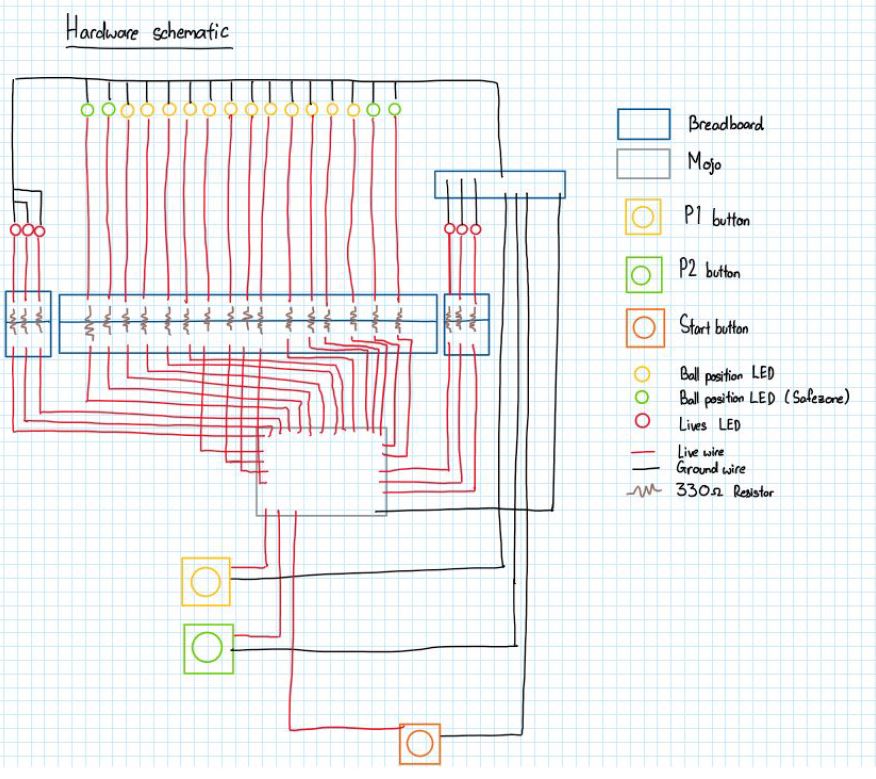 Hardware schematic
Breadboard
Mojo
P1 button
P2 button
Start button
Ball position LED
Ball position LED (Safezone)
Lives LED
Live wire
Ground wire
330Ω Resistor